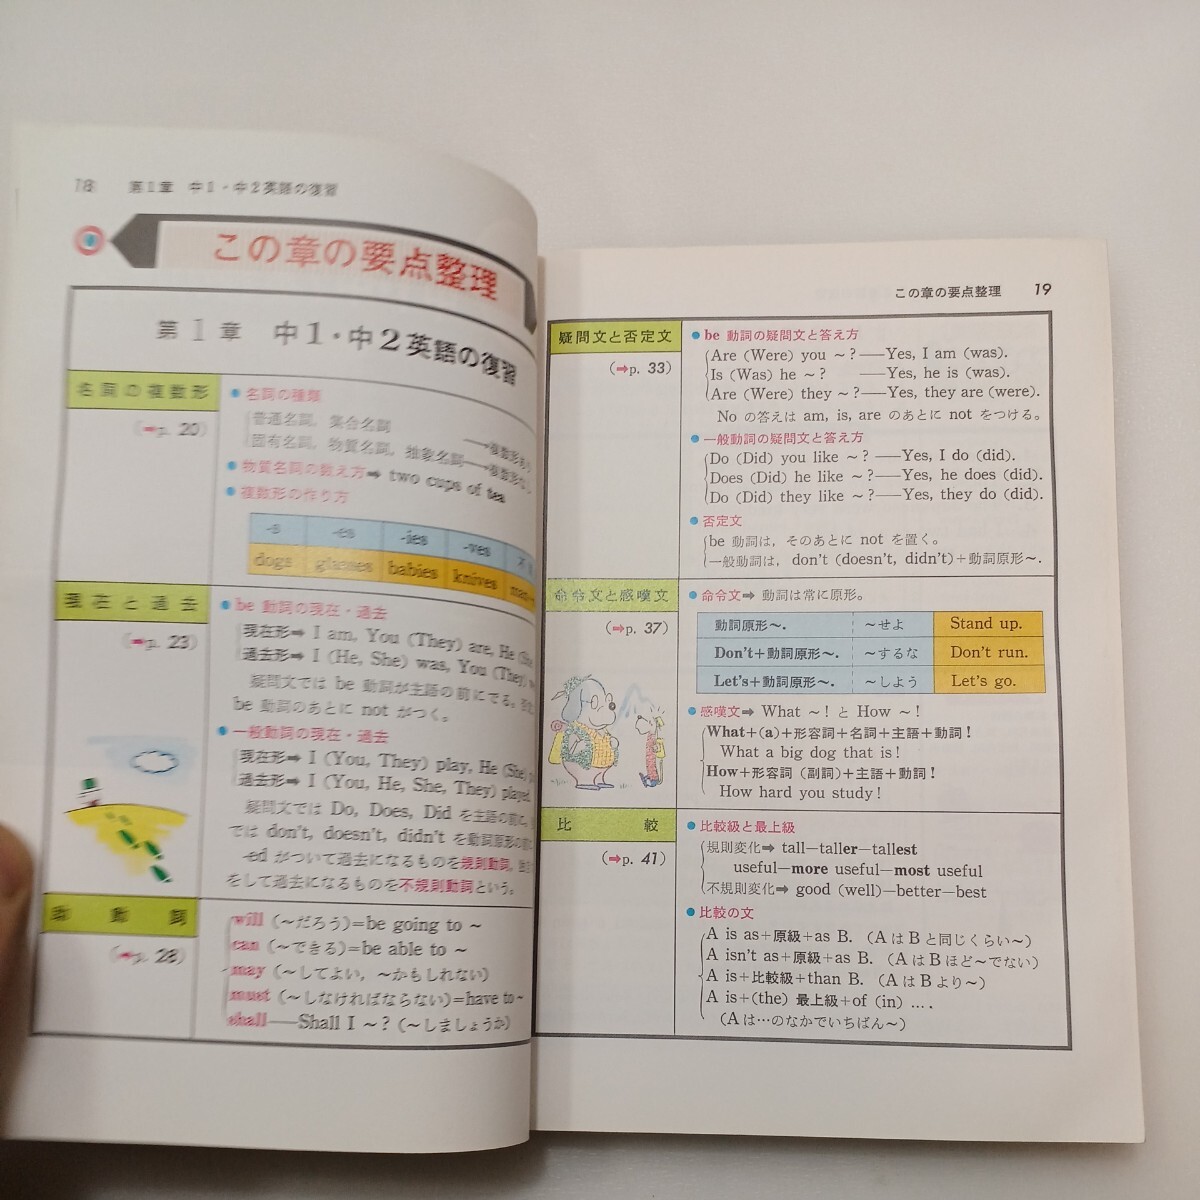 18 第1章 中1・中2英語の復習
この章の要点整理
第1章 中1・中2英語の復習
名詞の複数形
(➡p. 20)
● 名詞の種類
普通名詞, 集合名詞
固有名詞, 物質名詞, 抽象名詞
● 物質名詞の数え方➡ two cups of tea
● 複数形の作り方
-s -es -ies -ves
dogs glasses babies knives
現在と過去
(➡p. 23)
● be 動詞の現在・過去
現在形➡ I am, You (They) are, He (She
過去形➡ I (He, She) was, You (They)
疑問文では be 動詞が主語の前にでる。
be 動詞のあとに not がつく。
● 一般動詞の現在・過去
現在形➡ I (You, They) play, He (She)
過去形➡ I (You, He, She, They) played
疑問文では Do, Does, Did を主語の前に,
では don't, doesn't, didn't を動詞原形の前
-ed がついて過去になるものを規則動詞,
をして過去になるものを不規則動詞という。
助動詞
(➡p. 28)
will (〜だろう)=be going to 〜
can (〜できる)=be able to 〜
may (〜してよい, 〜かもしれない)
must (〜しなければならない)=have to〜
shall——Shall I 〜? (〜しましょうか)
この章の要点整理 19
疑問文と否定文
(➡p. 33)
● be 動詞の疑問文と答え方
Are (Were) you 〜?——Yes, I am (was).
Is (Was) he 〜? ——Yes, he is (was).
Are (Were) they 〜?——Yes, they are (were).
No の答えは am, is, are のあとに not をつける。
● 一般動詞の疑問文と答え方
Do (Did) you like 〜?——Yes, I do (did).
Does (Did) he like 〜?——Yes, he does (did).
Do (Did) they like 〜?——Yes, they do (did).
● 否定文
be 動詞は, そのあとに not を置く。
一般動詞は, don't (doesn't, didn't)+動詞原形〜.
命令文と感嘆文
(➡p. 37)
● 命令文➡ 動詞は常に原形。
動詞原形〜. 〜せよ Stand up.
Don't+動詞原形〜. 〜するな Don't run.
Let's+動詞原形〜. 〜しよう Let's go.
● 感嘆文➡ What 〜! と How 〜!
What+(a)+形容詞+名詞+主語+動詞!
What a big dog that is!
How+形容詞 (副詞)+主語+動詞!
How hard you study!
比較
(➡p. 41)
● 比較級と最上級
規則変化➡ tall—taller—tallest
useful—more useful—most useful
不規則変化➡ good (well)—better—best
● 比較の文
A is as+原級+as B. (A は B と同じくらい〜)
A isn't as+原級+as B. (A は B ほど〜でない)
A is+比較級+than B. (A は B より〜)
A is+(the) 最上級+of (in) ….
(A は…のなかでいちばん〜)